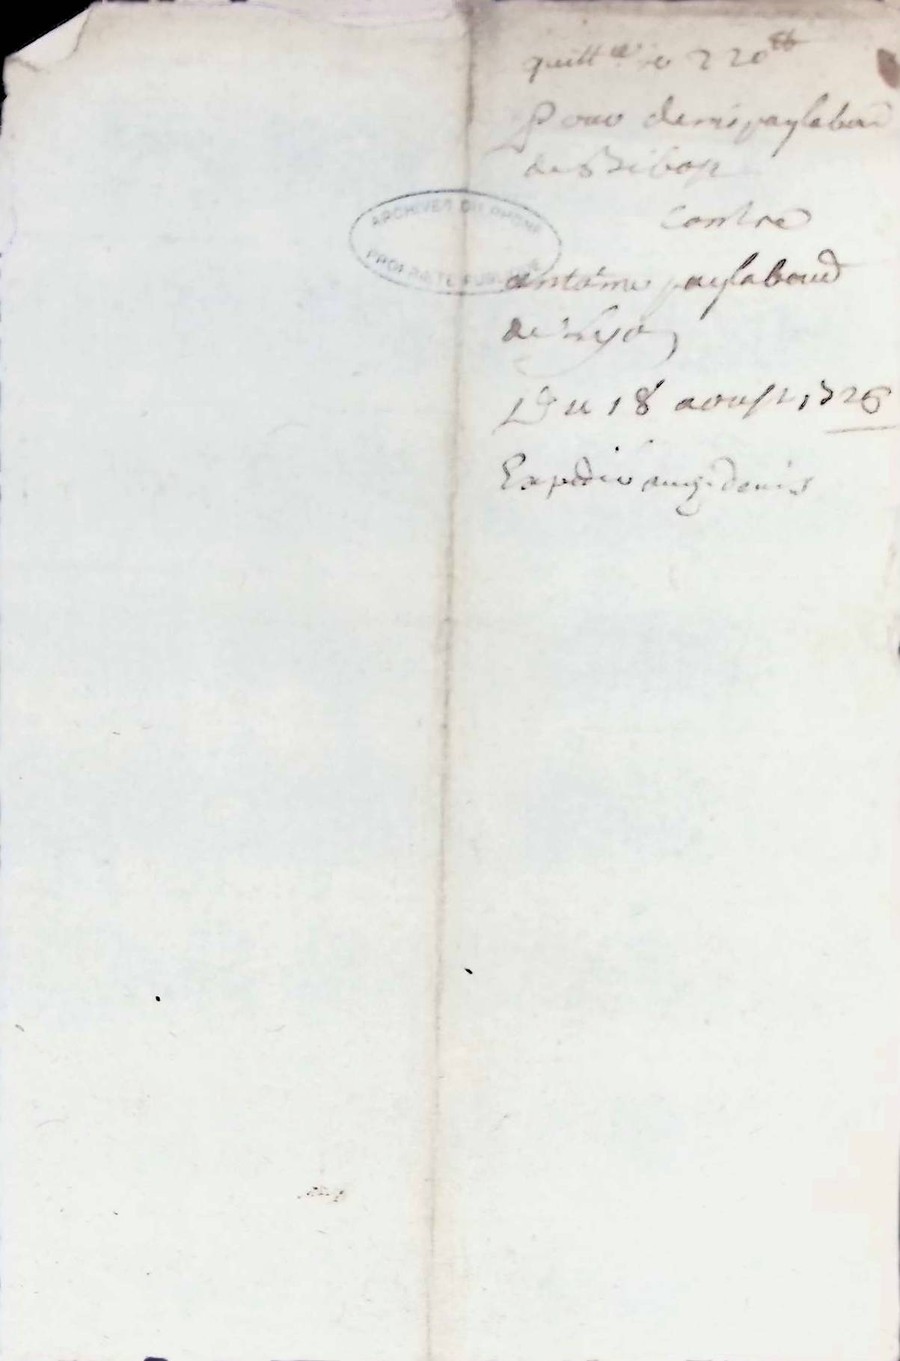 quitt.ce de 220 tt
Pour denis paylaboud
de Bibost
Contre
antoine paylaboud
de Lyon
Du 18 aoust 1726
Expédié audit denis
ARCHIVES DU RHONE
PROPRIÉTÉ PUBLIQUE